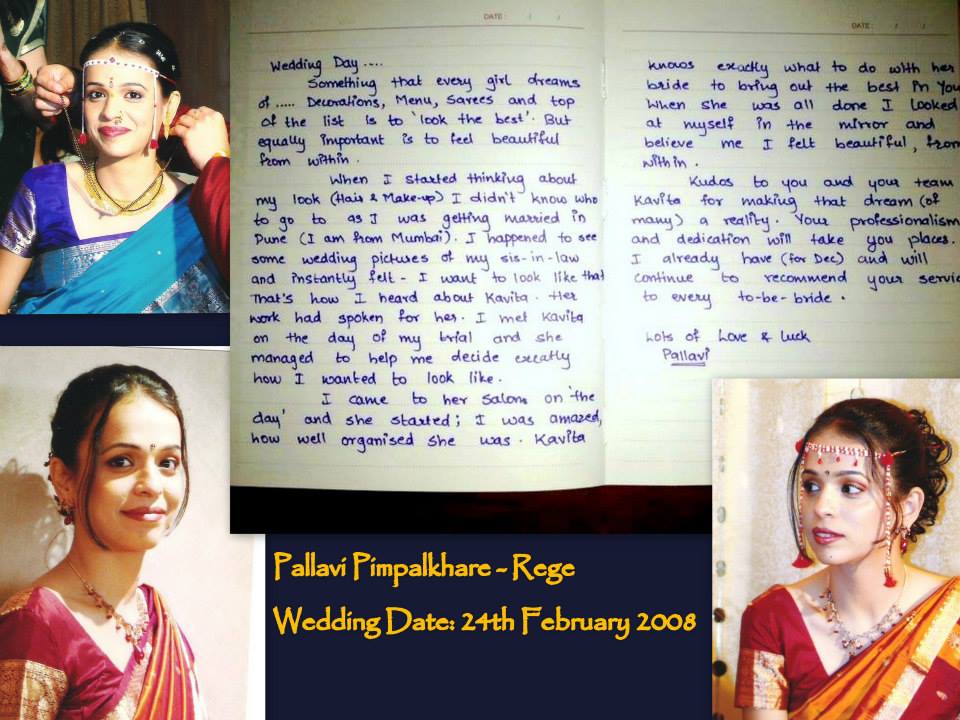 DATE: / /
Wedding Day ....
Something that every girl dreams
of ..... Decorations, Menu, Sarees and top
of the list is to 'look the best'. But
equally important is to feel beautiful
from within.
When I started thinking about
my look (Hair & Make-up) I didn't know who
to go to as I was getting married in
Pune (I am from Mumbai). I happened to see
some wedding pictures of my sis-in-law
and instantly felt - I want to look like that
That's how I heard about Kavita. Her
work had spoken for her. I met Kavita
on the day of my trial and she
managed to help me decide excatly
how I wanted to look like.
I came to her Salon on 'the
day' and she started; I was amazed,
how well organised she was. Kavita
DATE: / /
knows exactly what to do with her
bride to bring out the best in you
When she was all done I looked
at myself in the mirror and
believe me I felt beautiful, from
within.
Kudos to you and your team
Kavita for making that dream (of
many) a reality. Your professionalism
and dedication will take you places.
I already have (for Dec) and will
continue to recommend your servic
to every to-be-bride.
Lots of Love & Luck
Pallavi
Pallavi Pimpalkhare - Rege
Wedding Date: 24th February 2008